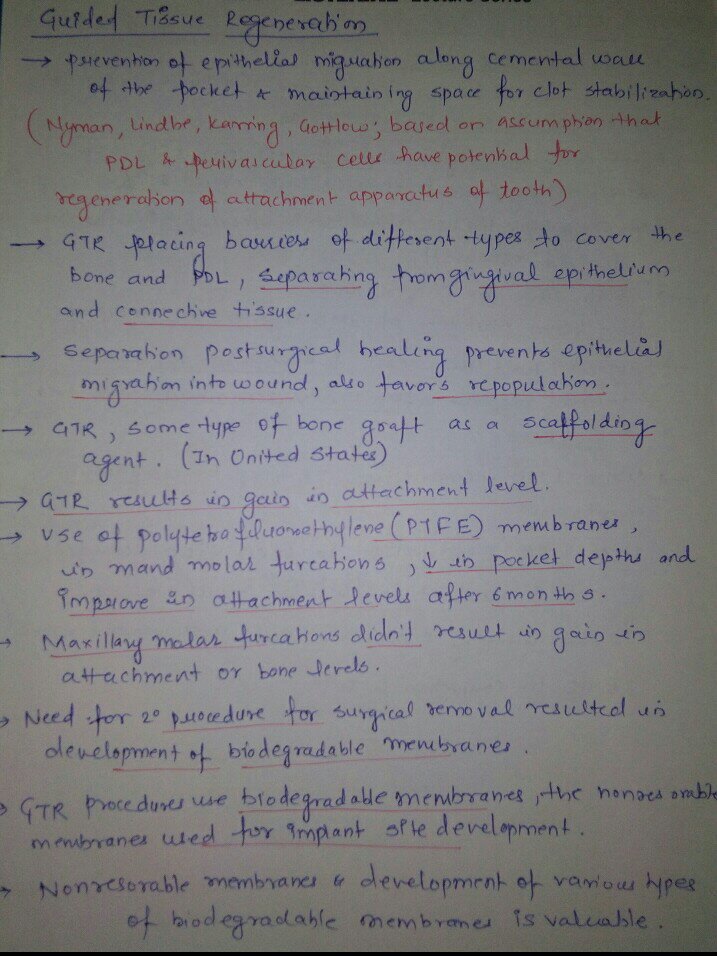 Guided Tissue Regeneration
→ prevention of epithelial migration along cemental wall
of the pocket & maintaining space for clot stabilization.
(Nyman, Lindhe, Karring, Gottlow; based on assumption that
PDL & perivascular cells have potential for
regeneration of attachment apparatus of tooth)
→ GTR placing barriers of different types to cover the
bone and PDL, separating from gingival epithelium
and connective tissue.
→ Separation postsurgical healing prevents epithelial
migration into wound, also favors repopulation.
→ GTR, some type of bone graft as a scaffolding
agent. (In United States)
→ GTR results in gain in attachment level.
→ Use of polytetrafluoroethylene (PTFE) membranes,
in mand molar furcations, ↓ in pocket depths and
improve in attachment levels after 6 months.
→ Maxillary molar furcations didn't result in gain in
attachment or bone levels.
→ Need for 2° procedure for surgical removal resulted in
development of biodegradable membranes.
→ GTR procedures use biodegradable membranes, the nonresorable
membranes used for implant site development.
→ Nonresorable membranes & development of various types
of biodegradable membranes is valuable.